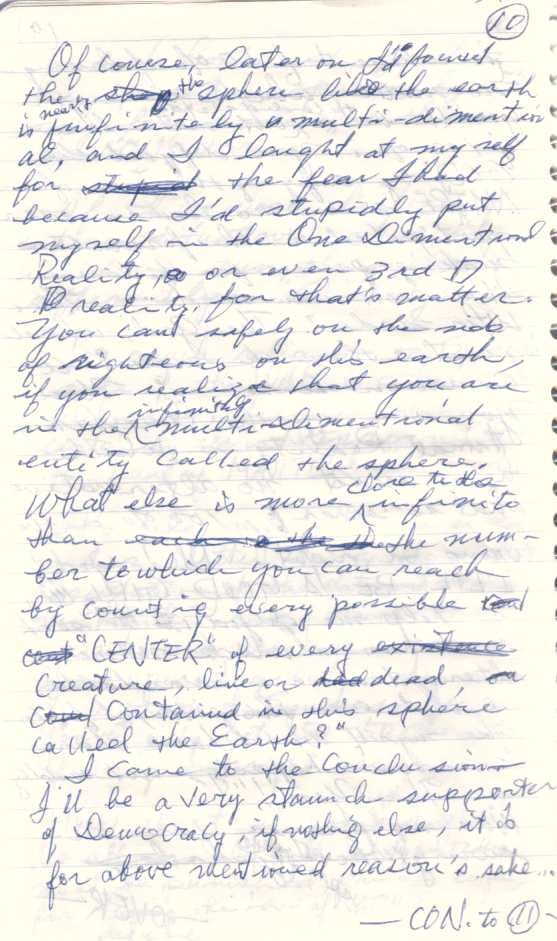 10
Of course, later on I'd found
the the sphere like the earth
is nearly infinitely multi-dimention
al, and I laught at my self
for stupid the fear I had
because I'd stupidly put
myself in the One Dimentional
Reality, or even 3rd D
reality, for that's matter.
You can safely on the side
of righteous on this earth,
if you realize that you are
in the infinitly multi-dimentional
entity called the sphere.
What else is more close to the infinito
than the num-
ber to which you can reach
by counting every possible
"CENTER" of every existence
Creature, live or dead
Contained in this sphere
called the Earth?"
I came to the conclusion
I'll be a very staunch supporter
of Democracy, if nothig else, it is
for above mentioned reason's sake...
— CON. to 11 —